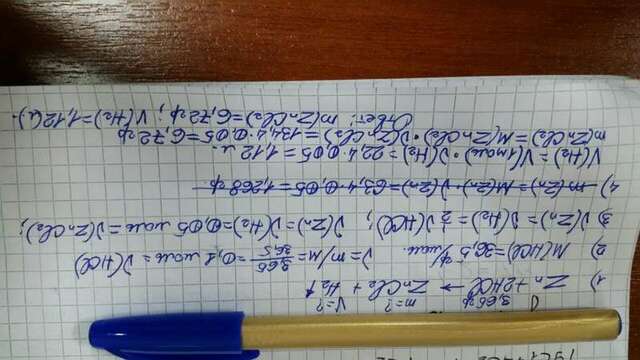 3,65 гр m=? V=?
1) Zn + 2HCl → ZnCl2 + H2↑
2) M(HCl)=36,5 гр/моль. ν=m/M=3,65/36,5=0,1 моль=ν(HCl)
3) ν(Zn)=ν(H2)=½ν(HCl); ν(Zn)=ν(H2)=0,05 моль=ν(ZnCl2);
4) m(Zn)=M(Zn)·ν(Zn)=63,4·0,05=1,268 гр
V(H2)=V(1моль)·ν(H2)=22,4·0,05=1,12 л.
m(ZnCl2)=M(ZnCl2)·ν(ZnCl2)=134,4·0,05=6,72 гр
Ответ: m(ZnCl2)=6,72 гр; V(H2)=1,12(л).